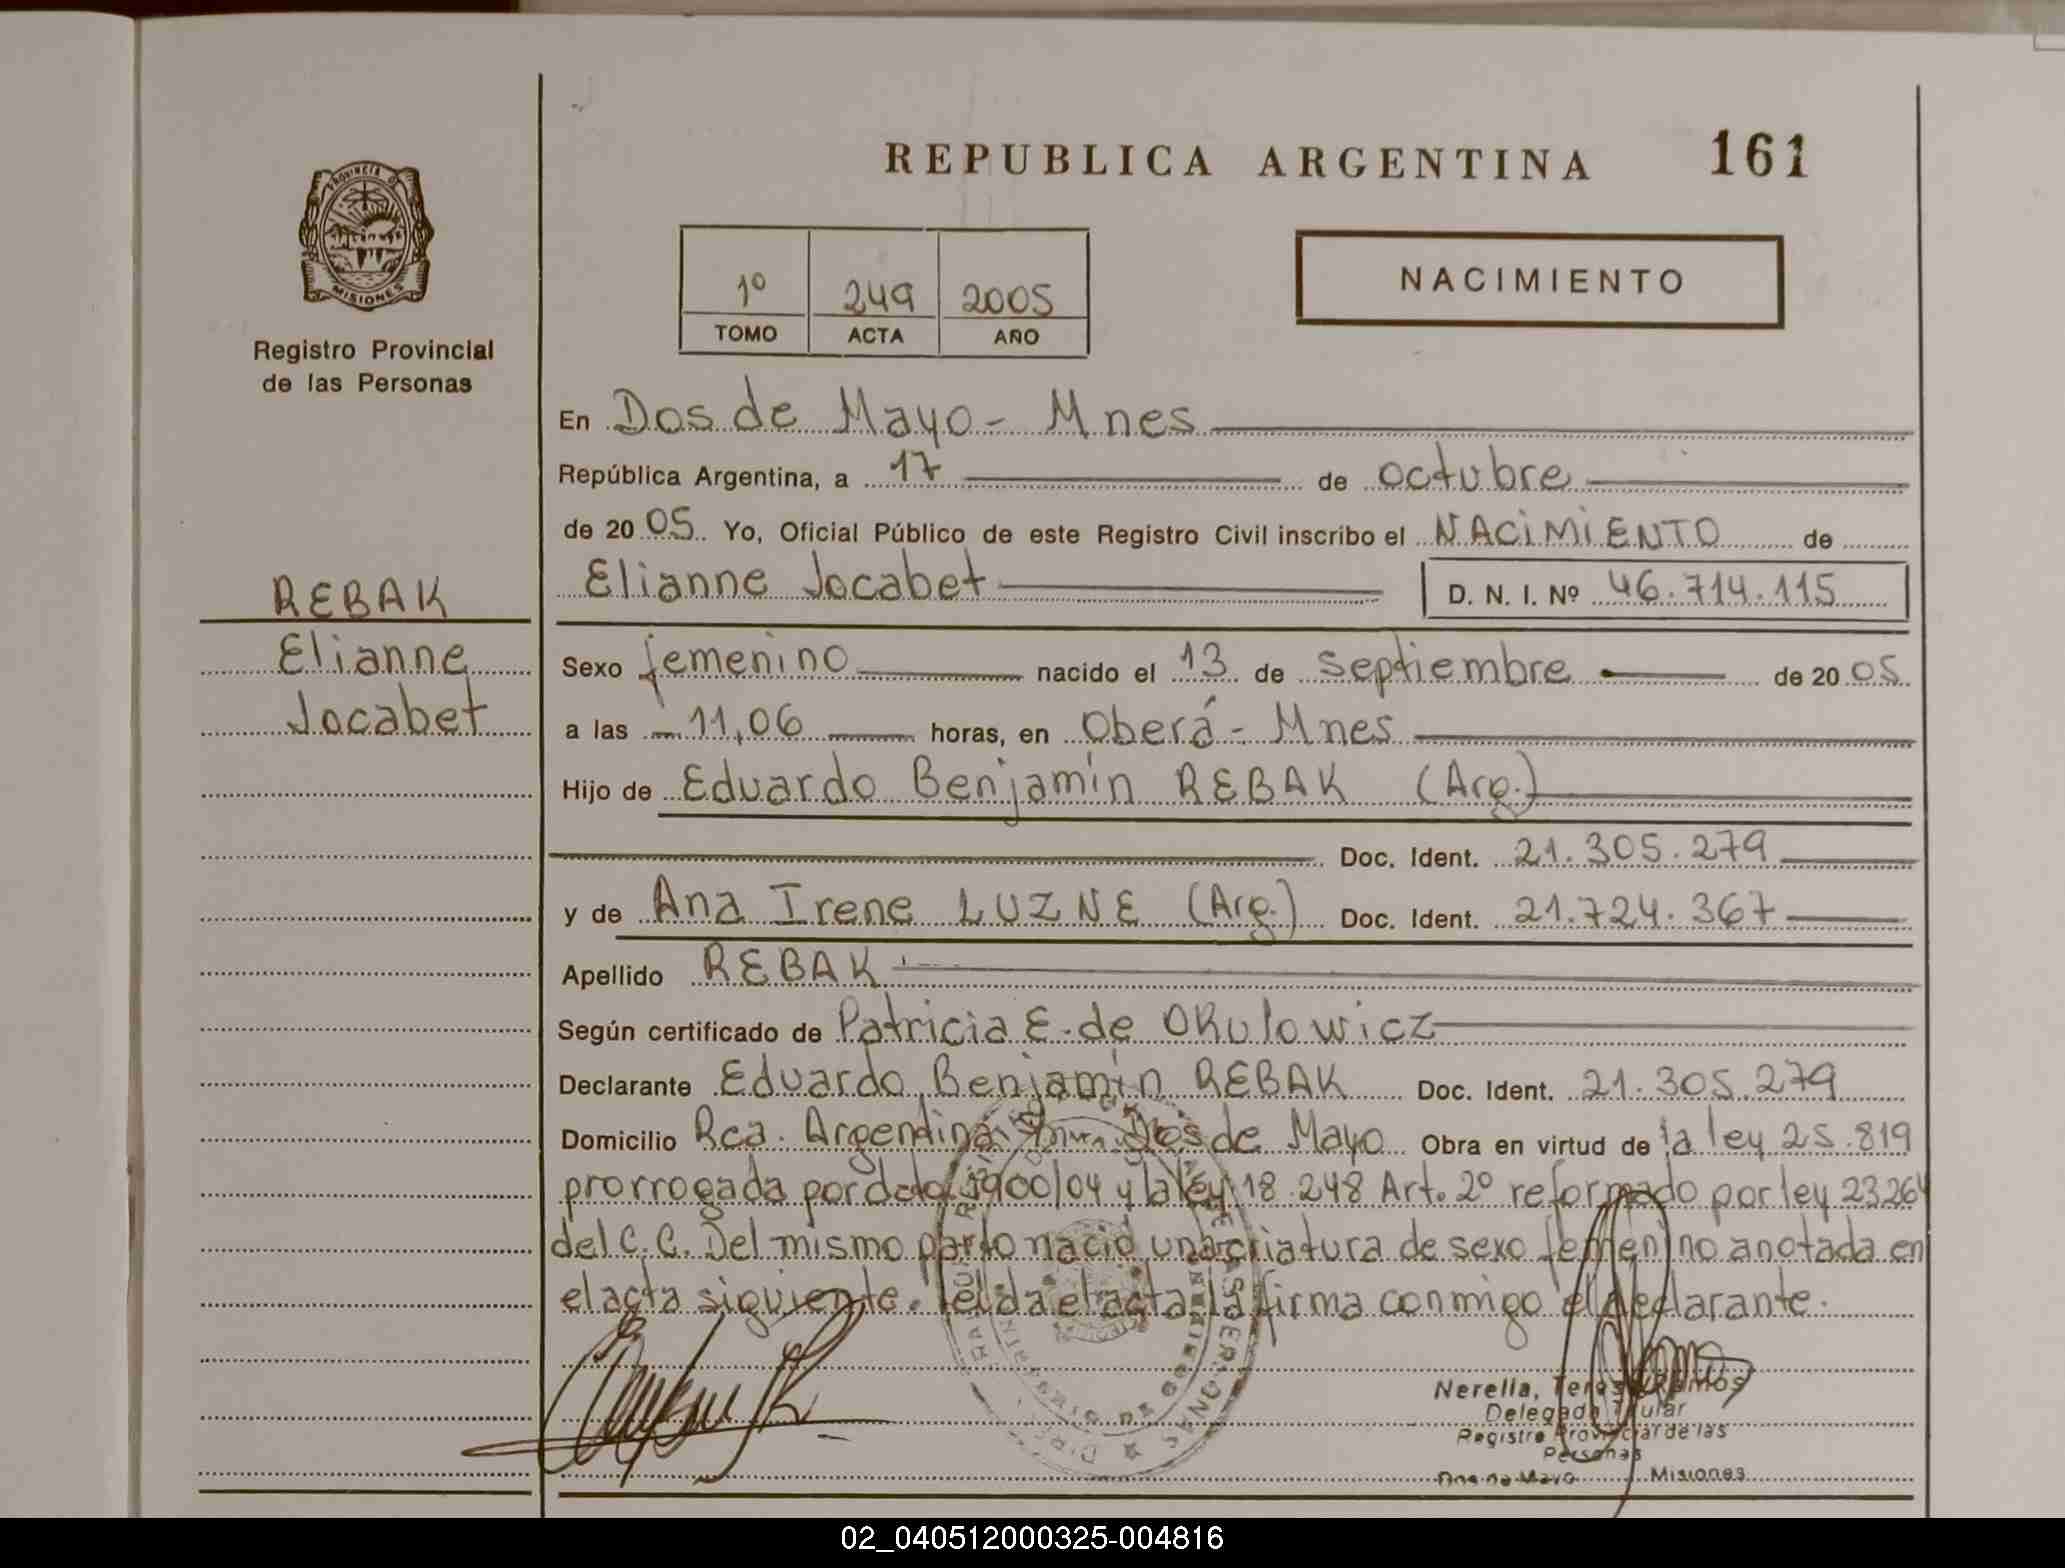 REPUBLICA ARGENTINA 161
PROVINCIA DE
MISIONES
Registro Provincial
de las Personas
1º 249 2005
TOMO ACTA AÑO
NACIMIENTO
En Dos de Mayo - Mnes
República Argentina, a 17 de octubre
de 2005. Yo, Oficial Público de este Registro Civil inscribo el NACIMIENTO de
Elianne Jocabet D. N. I. Nº 46.714.115
REBAK
Elianne
Jocabet
Sexo femenino nacido el 13 de septiembre de 2005
a las 11,06 horas, en Oberá - Mnes
Hijo de Eduardo Benjamín REBAK (Arg.)
Doc. Ident. 21.305.279
y de Ana Irene LUZNE (Arg.) Doc. Ident. 21.724.367
Apellido REBAK
Según certificado de Patricia E. de Okulowicz
Declarante Eduardo Benjamín REBAK Doc. Ident. 21.305.279
Domicilio Rca. Argentina Dos de Mayo Obra en virtud de la ley 25.819
prorrogada por dcto 1900/04 y la ley 18.248 Art. 2º reformado por ley 23264
del C.C. Del mismo parto nació una criatura de sexo femenino anotada en
el acta siguiente. Leída el acta la firma conmigo el declarante.
Nerella, Teresa Ramos
Delegada Titular
Registro Provincial de las
Personas
Dos de Mayo Misiones
02_040512000325-004816